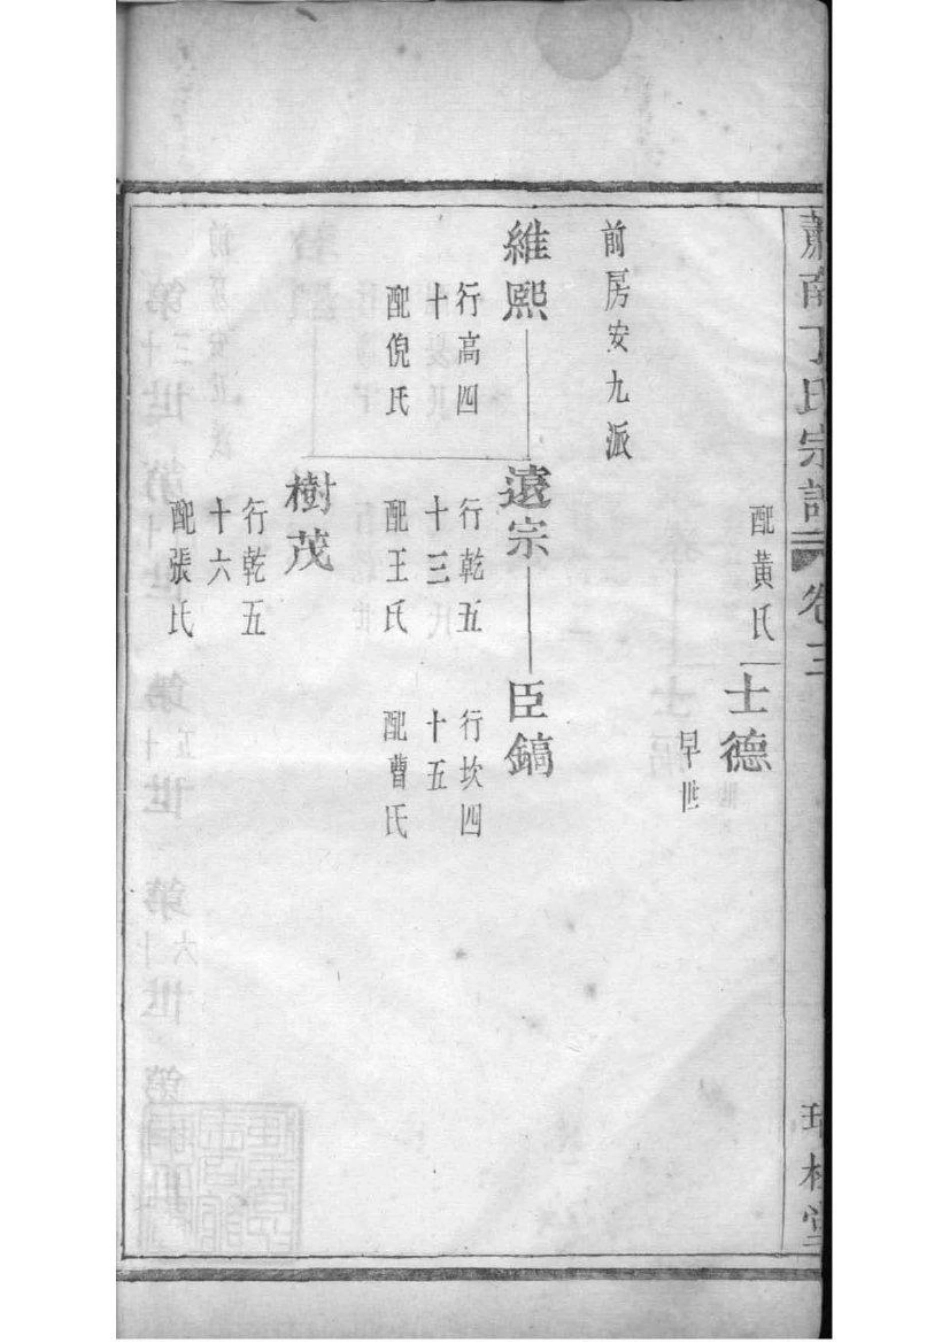 蕭南丁氏宗譜
卷三
配黃氏
士德
早世
前房安九派
維熙
行高四
十
配倪氏
遠宗
行乾五
十三
配王氏
臣鎬
行坎四
十五
配曹氏
樹茂
行乾五
十六
配張氏